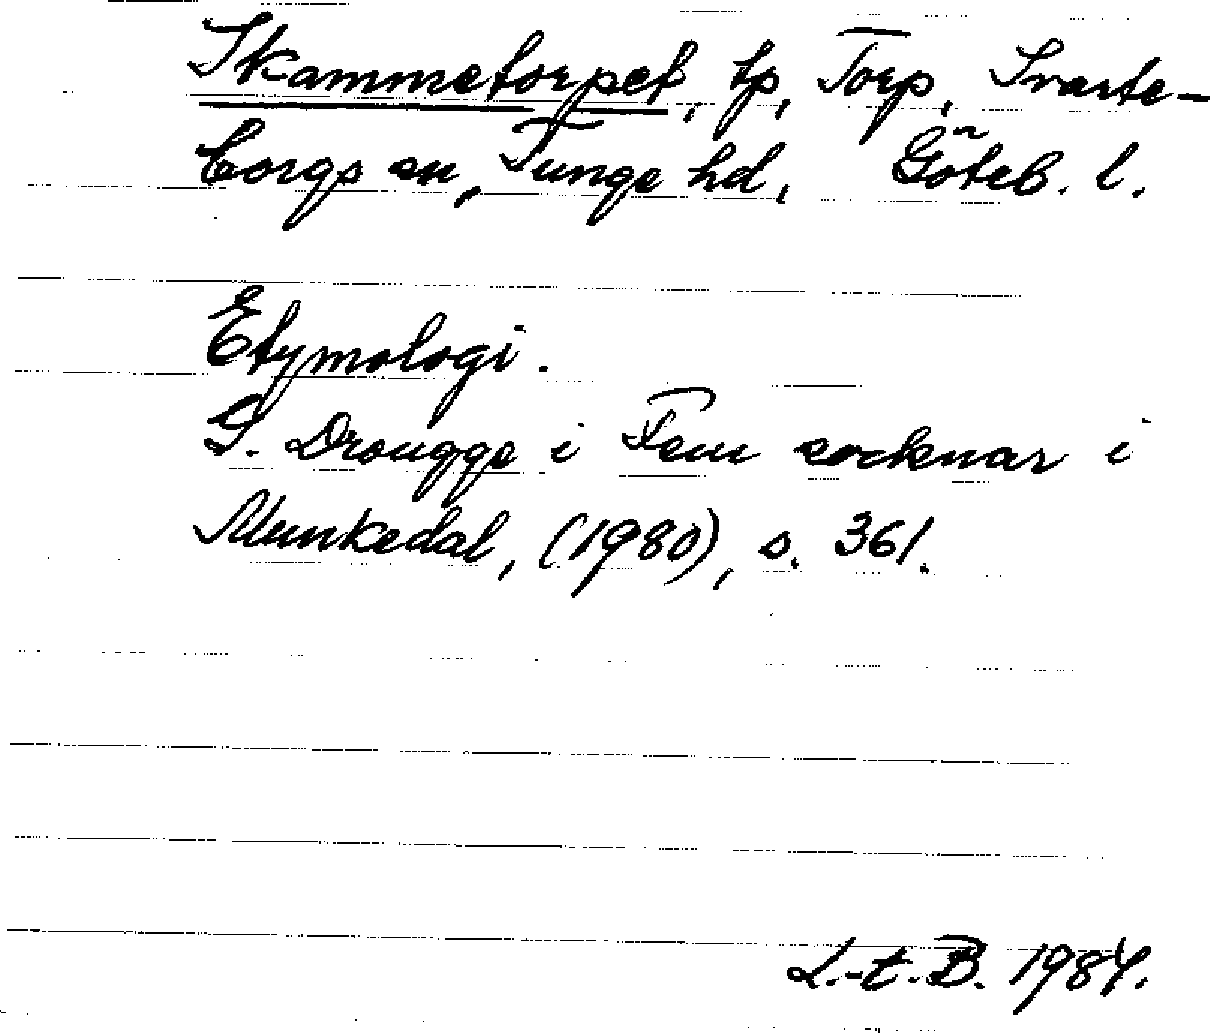 Skammetorpet, tp, Torp, Svarte-
borgs sn, Tunge hd, Göteb. l.
Etymologi.
G. Drougge i Fem socknar i
Munkedal, (1980), s. 361.
L.-t. B. 1984.